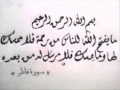 بسم الله الرحمن الرحيم
ما يفتح الله للناس من رحمة فلا ممسك
لها وما يمسك فلا مرسل له من بعده
سورة فاطر